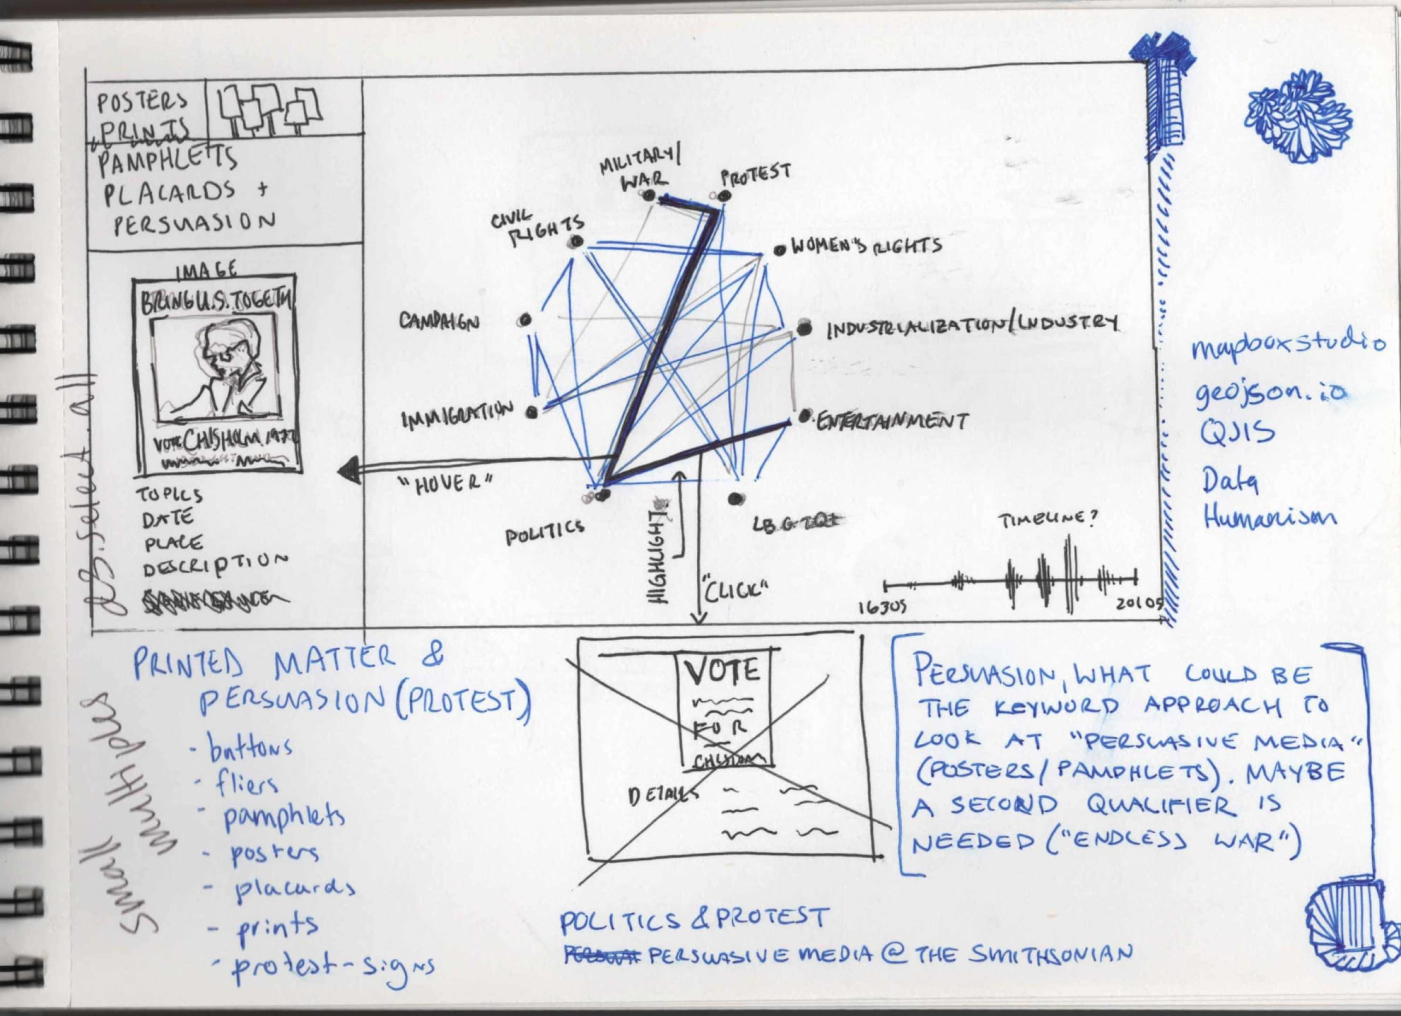 POSTERS
PRINTS
PAMPHLETTS
PLACARDS +
PERSUASION
IMAGE
BRING U.S. TOGETH
VOTE CHISHOLM 1972
TOPICS
DATE
PLACE
DESCRIPTION
d3.select.all
MILITARY/
WAR
PROTEST
CIVIL
RIGHTS
WOMEN'S RIGHTS
CAMPAIGN
INDUSTRIALIZATION/INDUSTRY
IMMIGRATION
ENTERTAINMENT
"HOVER"
POLITICS
HIGHLIGHT
"CLICK"
LBGTQI
TIMELINE?
1630s
2010s
mapboxstudio
geojson.io
QJIS
Data
Humanism
PRINTED MATTER &
PERSUASION (PROTEST)
- buttons
- fliers
- pamphlets
- posters
- placards
- prints
- protest-signs
Small
multiples
VOTE
FOR
DETAILS
PERSUASION, WHAT COULD BE
THE KEYWORD APPROACH TO
LOOK AT "PERSUASIVE MEDIA"
(POSTERS/PAMPHLETS). MAYBE
A SECOND QUALIFIER IS
NEEDED ("ENDLESS WAR")
POLITICS & PROTEST
PERSUASIVE MEDIA @ THE SMITHSONIAN